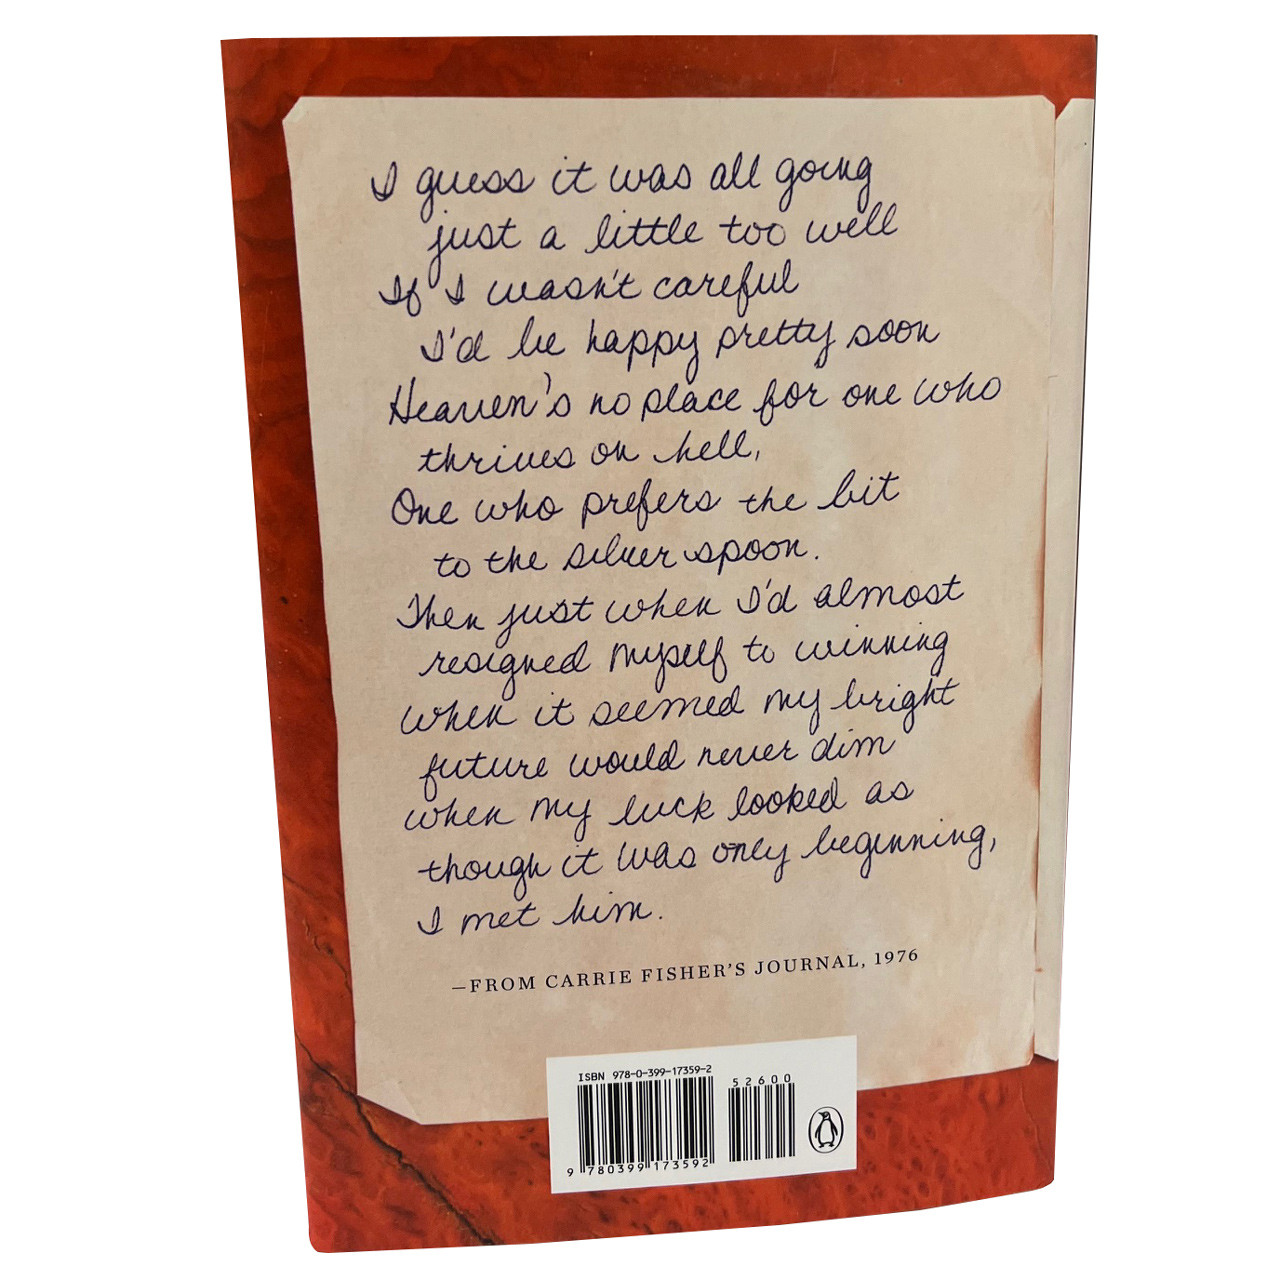 I guess it was all going
just a little too well
If I wasn't careful
I'd be happy pretty soon
Heaven's no place for one who
thrives on hell,
One who prefers the bit
to the silver spoon.
Then just when I'd almost
resigned myself to winning
when it seemed my bright
future would never dim
when my luck looked as
though it was only beginning,
I met him.
—FROM CARRIE FISHER'S JOURNAL, 1976
ISBN 978-0-399-17359-2
52600
9 780399 173592